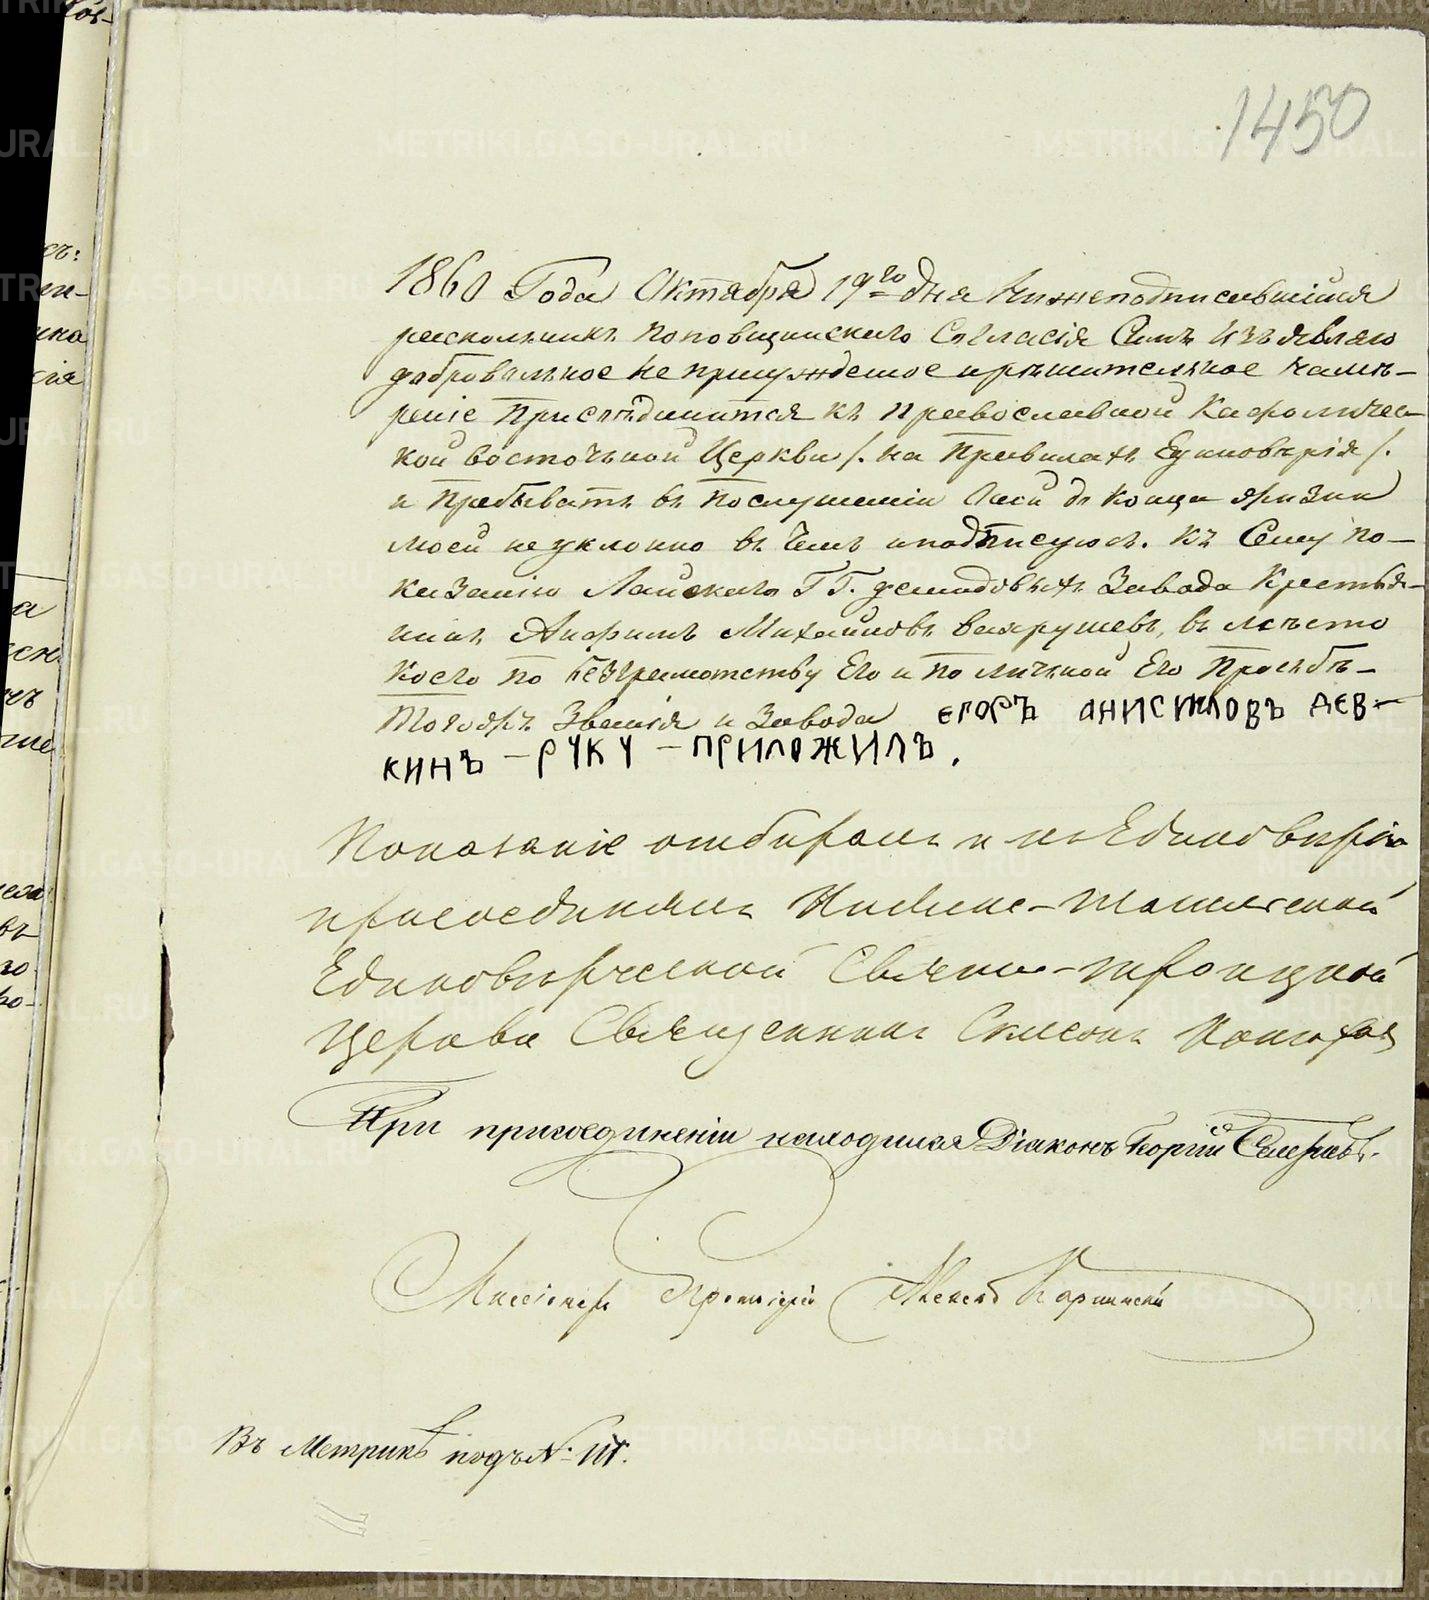 1450
1860 Года Октября 19го дня Нижеподписавшійся
раскольникъ поповщинскаго Согласія Симъ изъявляю
добровольное не принужденое и решительное намѣ-
реніе Присоѣдинится къ Православной Кафоличес-
кой восточьной Церкви /. на Правилахъ Единовѣрія /.
и Пребывать въ Послушаніи Оной до конца жизни
моей неуклонно въ чемъ и подписуюсъ. Къ Сему по-
казанію Лайскаго ГГ. демидовыхъ Завода Крестья-
нинъ Анфимъ Михайловъ вахрушевъ, въ мѣсто
коего по безграмотству Его и по личной Его Прозьбѣ-
Тогожъ Званія и Завода ЕГОРЪ АНИСИМОВЪ ДЕВ-
КИНЪ - РУКУ - ПРИЛОЖИЛЪ.
Показаніе отбиралъ и къ Единовѣрію
присоединялъ Нижне-Тагильской
Единовѣрческой Свято-Троицкой
Церкви Священникъ Симеонъ
При присоединеніи находился Діаконъ Георгій
Миссіонеръ Протоіерей
Въ Метрикѣ подъ №
METRIKI.GASO-URAL.RU